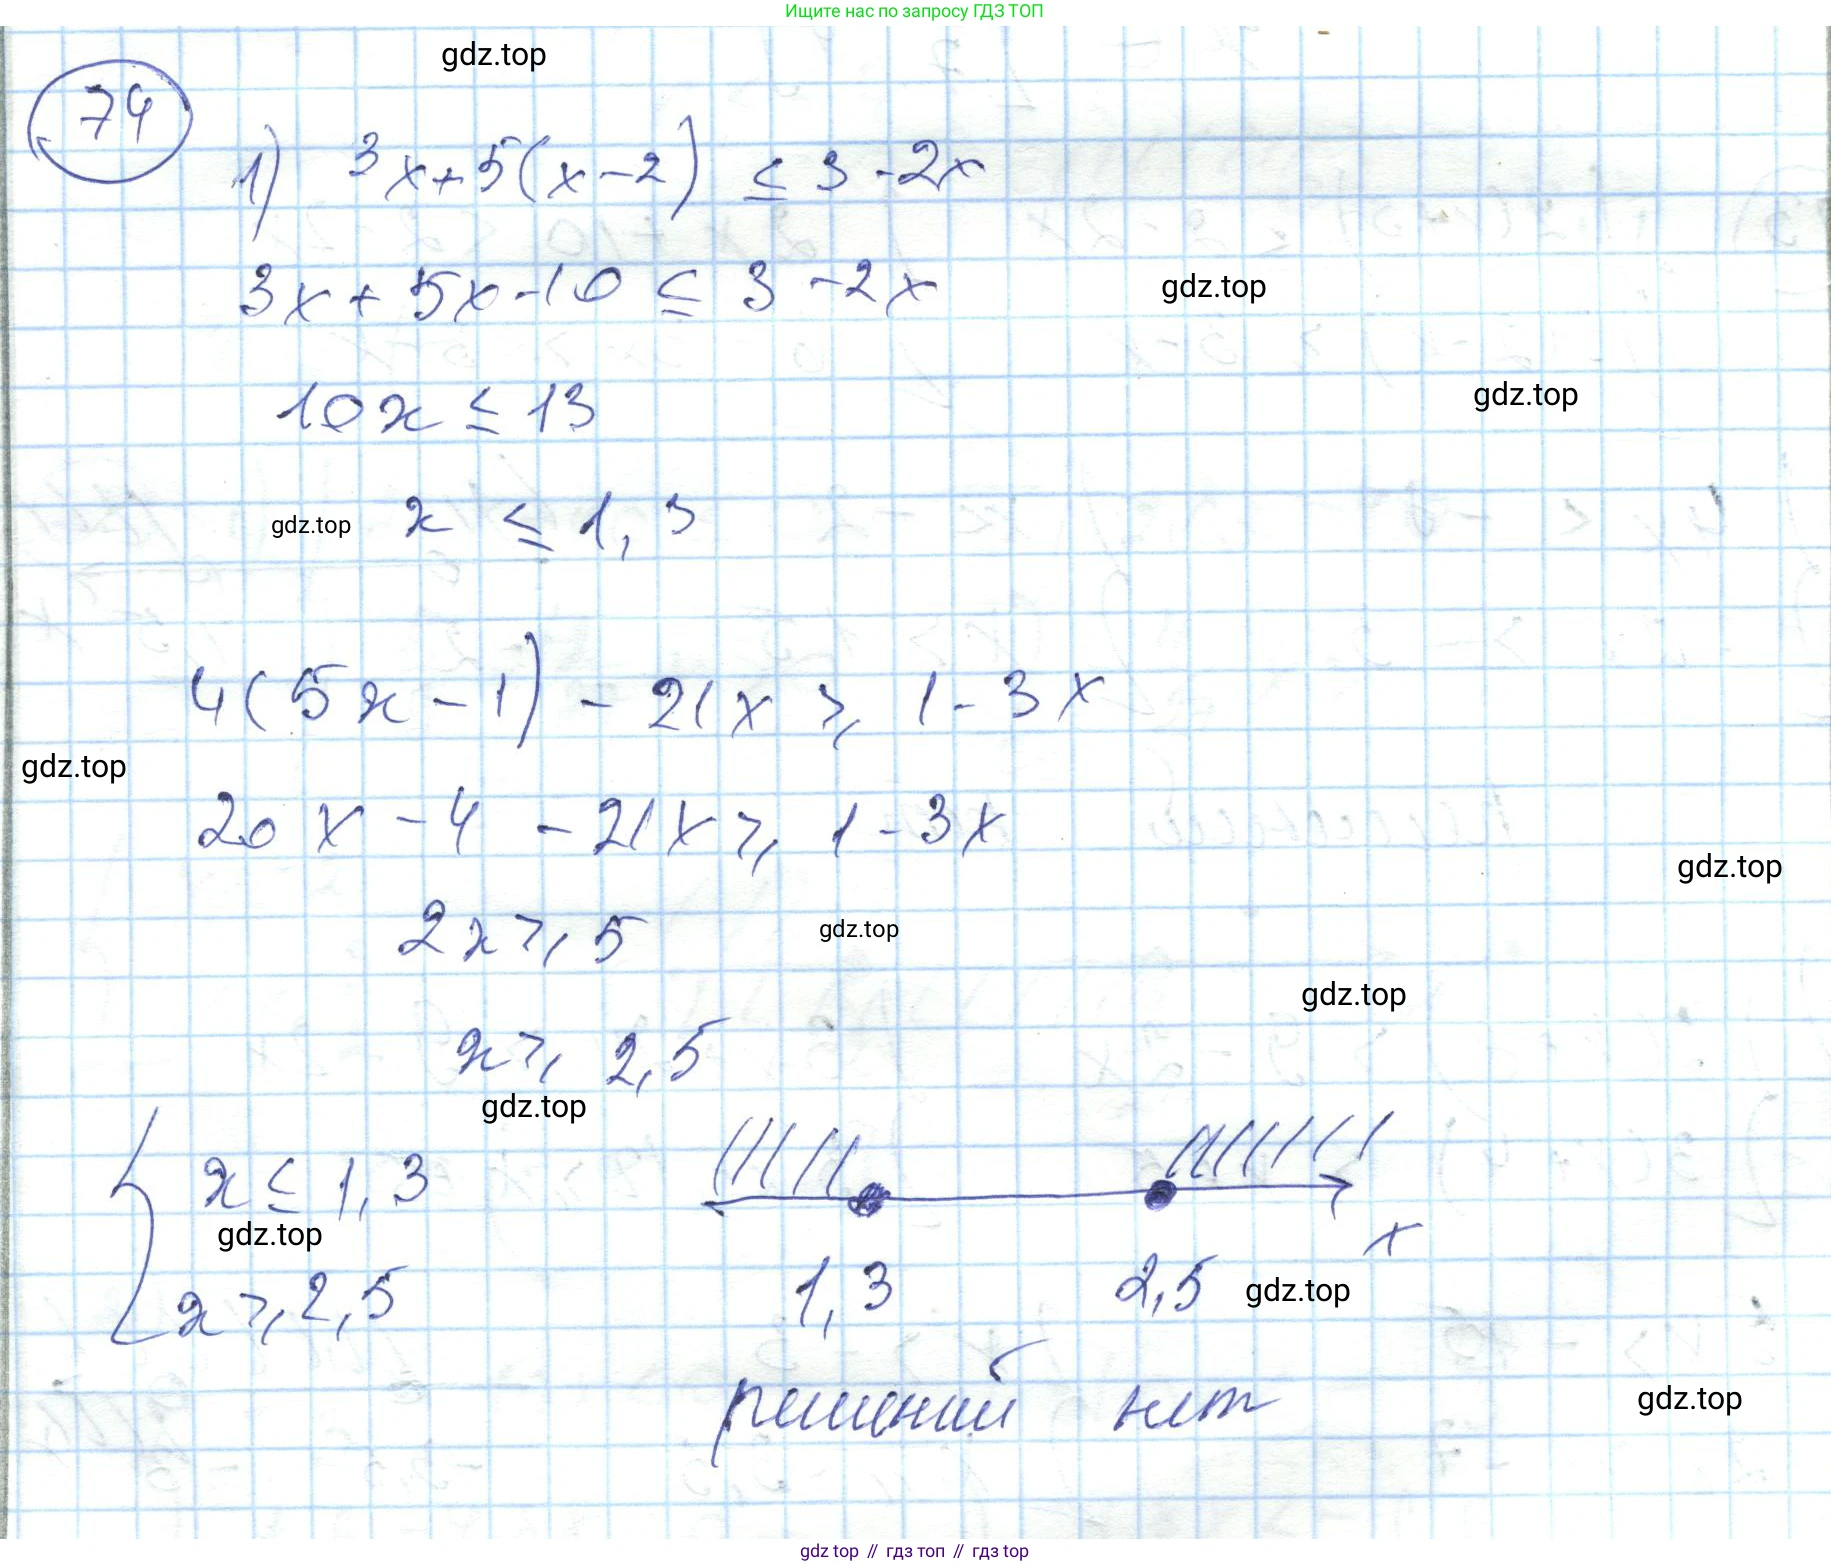 Ищите нас по запросу ГДЗ ТОП
gdz.top
74
1) 3x+5(x-2) ≤ 3-2x
3x+5x-10 ≤ 3-2x
gdz.top
10x ≤ 13
gdz.top
gdz.top
x ≤ 1,3
4(5x-1)-21x ⩾ 1-3x
gdz.top
20x-4-21x ⩾ 1-3x
gdz.top
2x ⩾ 5
gdz.top
gdz.top
x ⩾ 2,5
gdz.top
x ≤ 1,3
gdz.top
x
x ⩾ 2,5
1,3 2,5
gdz.top
решений нет
gdz.top
gdz top // гдз топ // гдз top